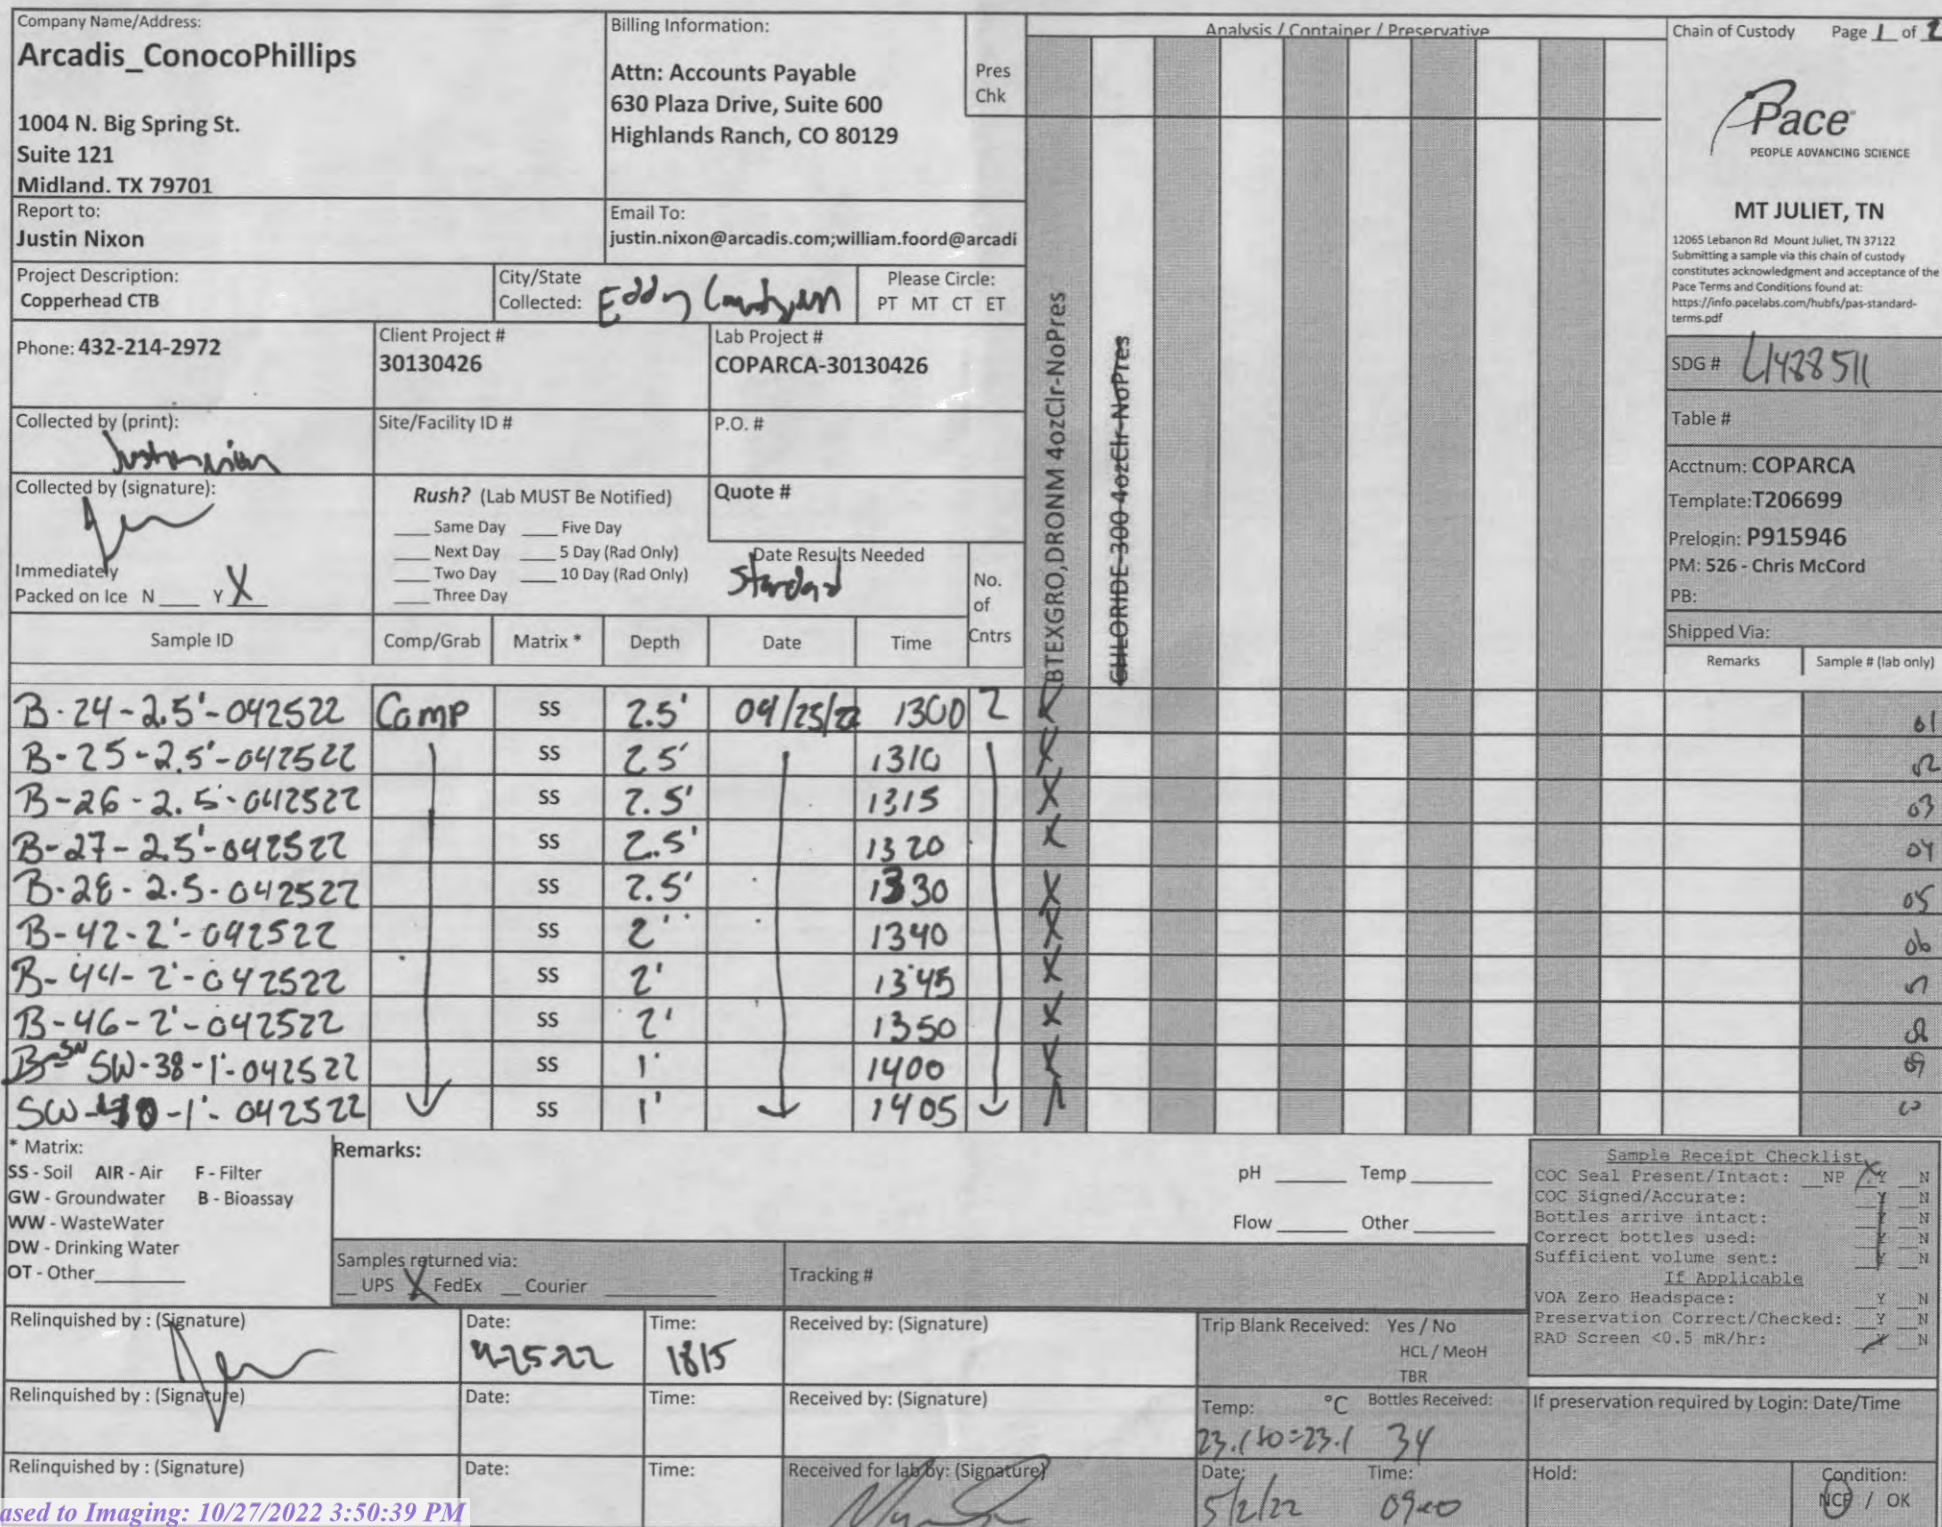 Company Name/Address:
Arcadis_ConocoPhillips
1004 N. Big Spring St.
Suite 121
Midland. TX 79701
Billing Information:
Attn: Accounts Payable
630 Plaza Drive, Suite 600
Highlands Ranch, CO 80129
Pres
Chk
Analysis / Container / Preservative
Chain of Custody Page 1 of 2
Pace
PEOPLE ADVANCING SCIENCE
MT JULIET, TN
12065 Lebanon Rd Mount Juliet, TN 37122
Submitting a sample via this chain of custody
constitutes acknowledgment and acceptance of the
Pace Terms and Conditions found at:
https://info.pacelabs.com/hubfs/pas-standard-
terms.pdf
Report to:
Justin Nixon
Email To:
justin.nixon@arcadis.com;william.foord@arcadi
Project Description:
Copperhead CTB
City/State
Collected: Eddy
Please Circle:
PT MT CT ET
Phone: 432-214-2972
Client Project #
30130426
Lab Project #
COPARCA-30130426
SDG # L1488511
Table #
Collected by (print):
Justin Nixon
Site/Facility ID #
P.O. #
Acctnum: COPARCA
Template: T206699
Prelogin: P915946
PM: 526 - Chris McCord
PB:
Shipped Via:
Collected by (signature):
Rush? (Lab MUST Be Notified)
Same Day Five Day
Next Day 5 Day (Rad Only)
Two Day 10 Day (Rad Only)
Three Day
Quote #
Date Results Needed
Standard
Immediately
Packed on Ice N Y X
No.
of
Cntrs
BTEXGRO,DRONM 4ozClr-NoPres
CHLORIDE-300 4ozClr-NoPres
Sample ID Comp/Grab Matrix * Depth Date Time Remarks Sample # (lab only)
B-24-2.5'-042522 Comp SS 2.5' 04/25/22 1300 2 X 01
B-25-2.5'-042522 SS 2.5' 1310 X 02
B-26-2.5'-042522 SS 2.5' 1315 X 03
B-27-2.5'-042522 SS 2.5' 1320 X 04
B-28-2.5-042522 SS 2.5' 1330 X 05
B-42-2'-042522 SS 2' 1340 X 06
B-44-2'-042522 SS 2' 1345 X
B-46-2'-042522 SS 2' 1350 X 08
B- SN SW-38-1'-042522 SS 1' 1400 X 09
SW- -1'-042522 SS 1' 1405 X
* Matrix:
SS - Soil AIR - Air F - Filter
GW - Groundwater B - Bioassay
WW - WasteWater
DW - Drinking Water
OT - Other
Remarks:
pH Temp
Flow Other
Samples returned via:
UPS X FedEx Courier
Tracking #
Sample Receipt Checklist
COC Seal Present/Intact: NP X Y N
COC Signed/Accurate: Y N
Bottles arrive intact: Y N
Correct bottles used: Y N
Sufficient volume sent: Y N
If Applicable
VOA Zero Headspace: Y N
Preservation Correct/Checked: Y N
RAD Screen <0.5 mR/hr: Y N
Relinquished by : (Signature)
Date:
4-25-22
Time:
1815
Received by: (Signature)
Trip Blank Received: Yes / No
HCL / MeoH
TBR
Relinquished by : (Signature)
Date:
Time:
Received by: (Signature)
Temp: °C Bottles Received:
23.1+0=23.1 34
If preservation required by Login: Date/Time
Relinquished by : (Signature)
Date:
Time:
Received for lab by: (Signature)
Date:
5/2/22
Time:
0900
Hold:
Condition:
NCF / OK
ased to Imaging: 10/27/2022 3:50:39 PM